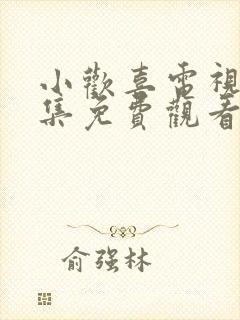 小歡喜電視
集免費觀看
俞强林